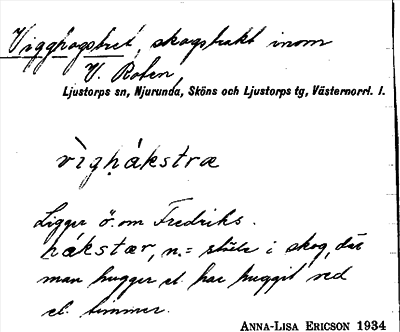 Vigghogstret, skogstrakt inom
V. Roten,
Ljustorps sn, Njurunda, Sköns och Ljustorps tg, Västernorrl. l.
vìgḥákstræ
Ligger ö. om Fredriks.
hákstær, n. = ställe i skog, där
man hugger el. har huggit ned
el. timmer.
ANNA-LISA ERICSON 1934